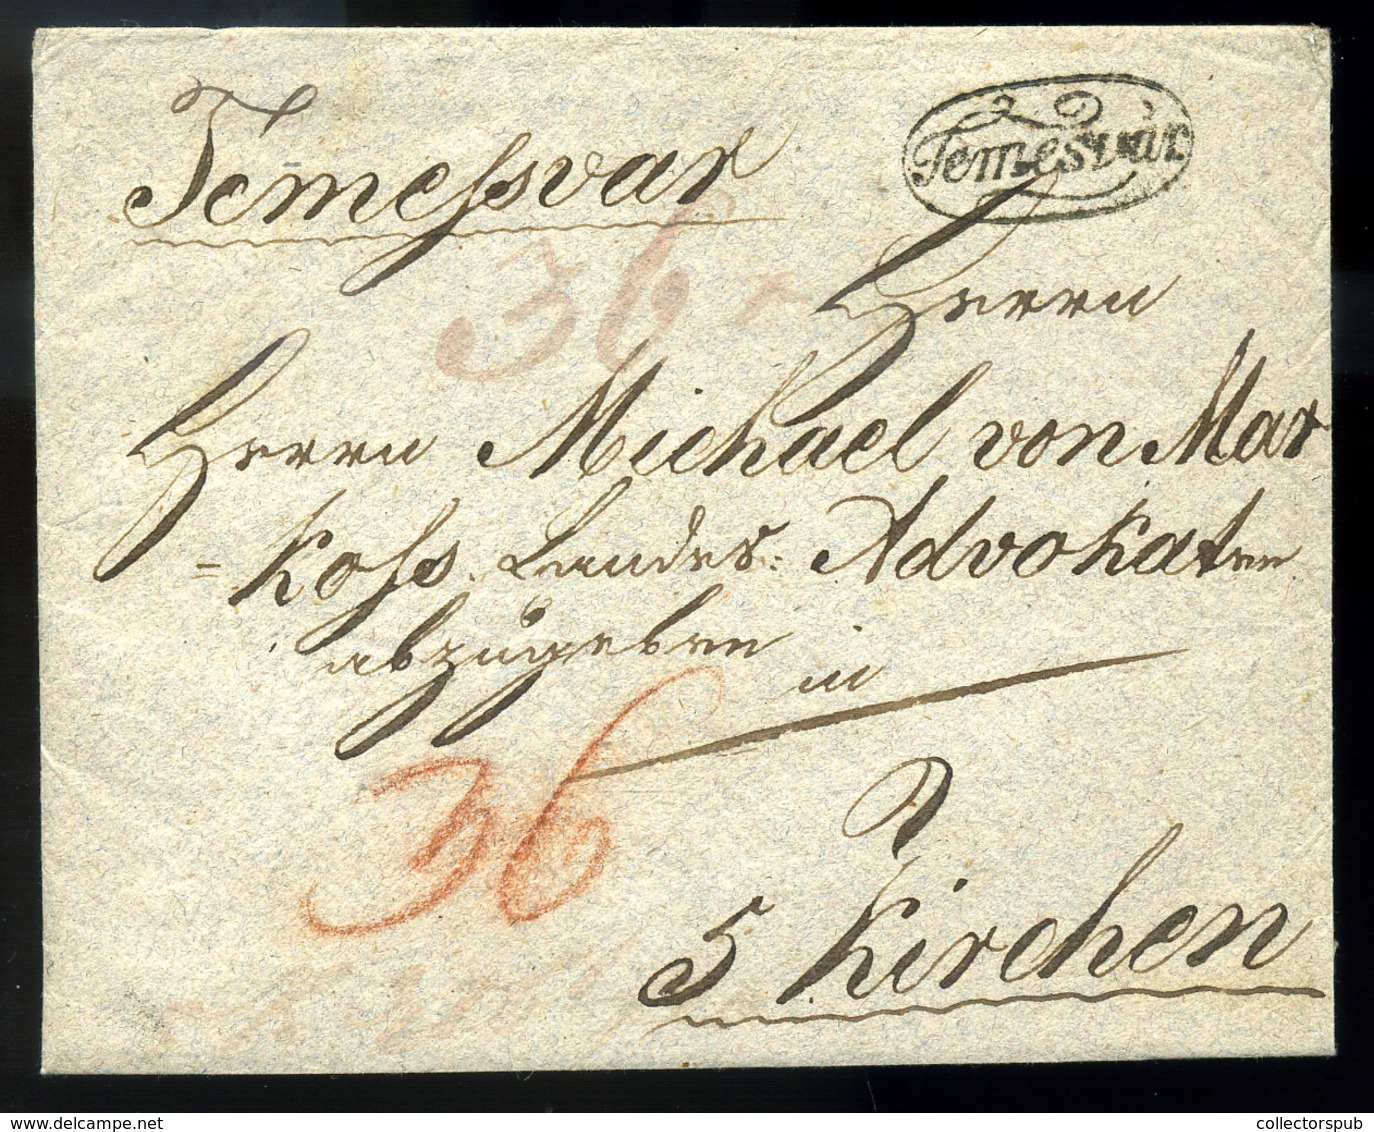 Temessvar
Temesvár
36
Herrn
Herrn Michael von Mar
= koss. Landes: Advokaten
abzugeben
in
36
5 Kirchen
collectorspub